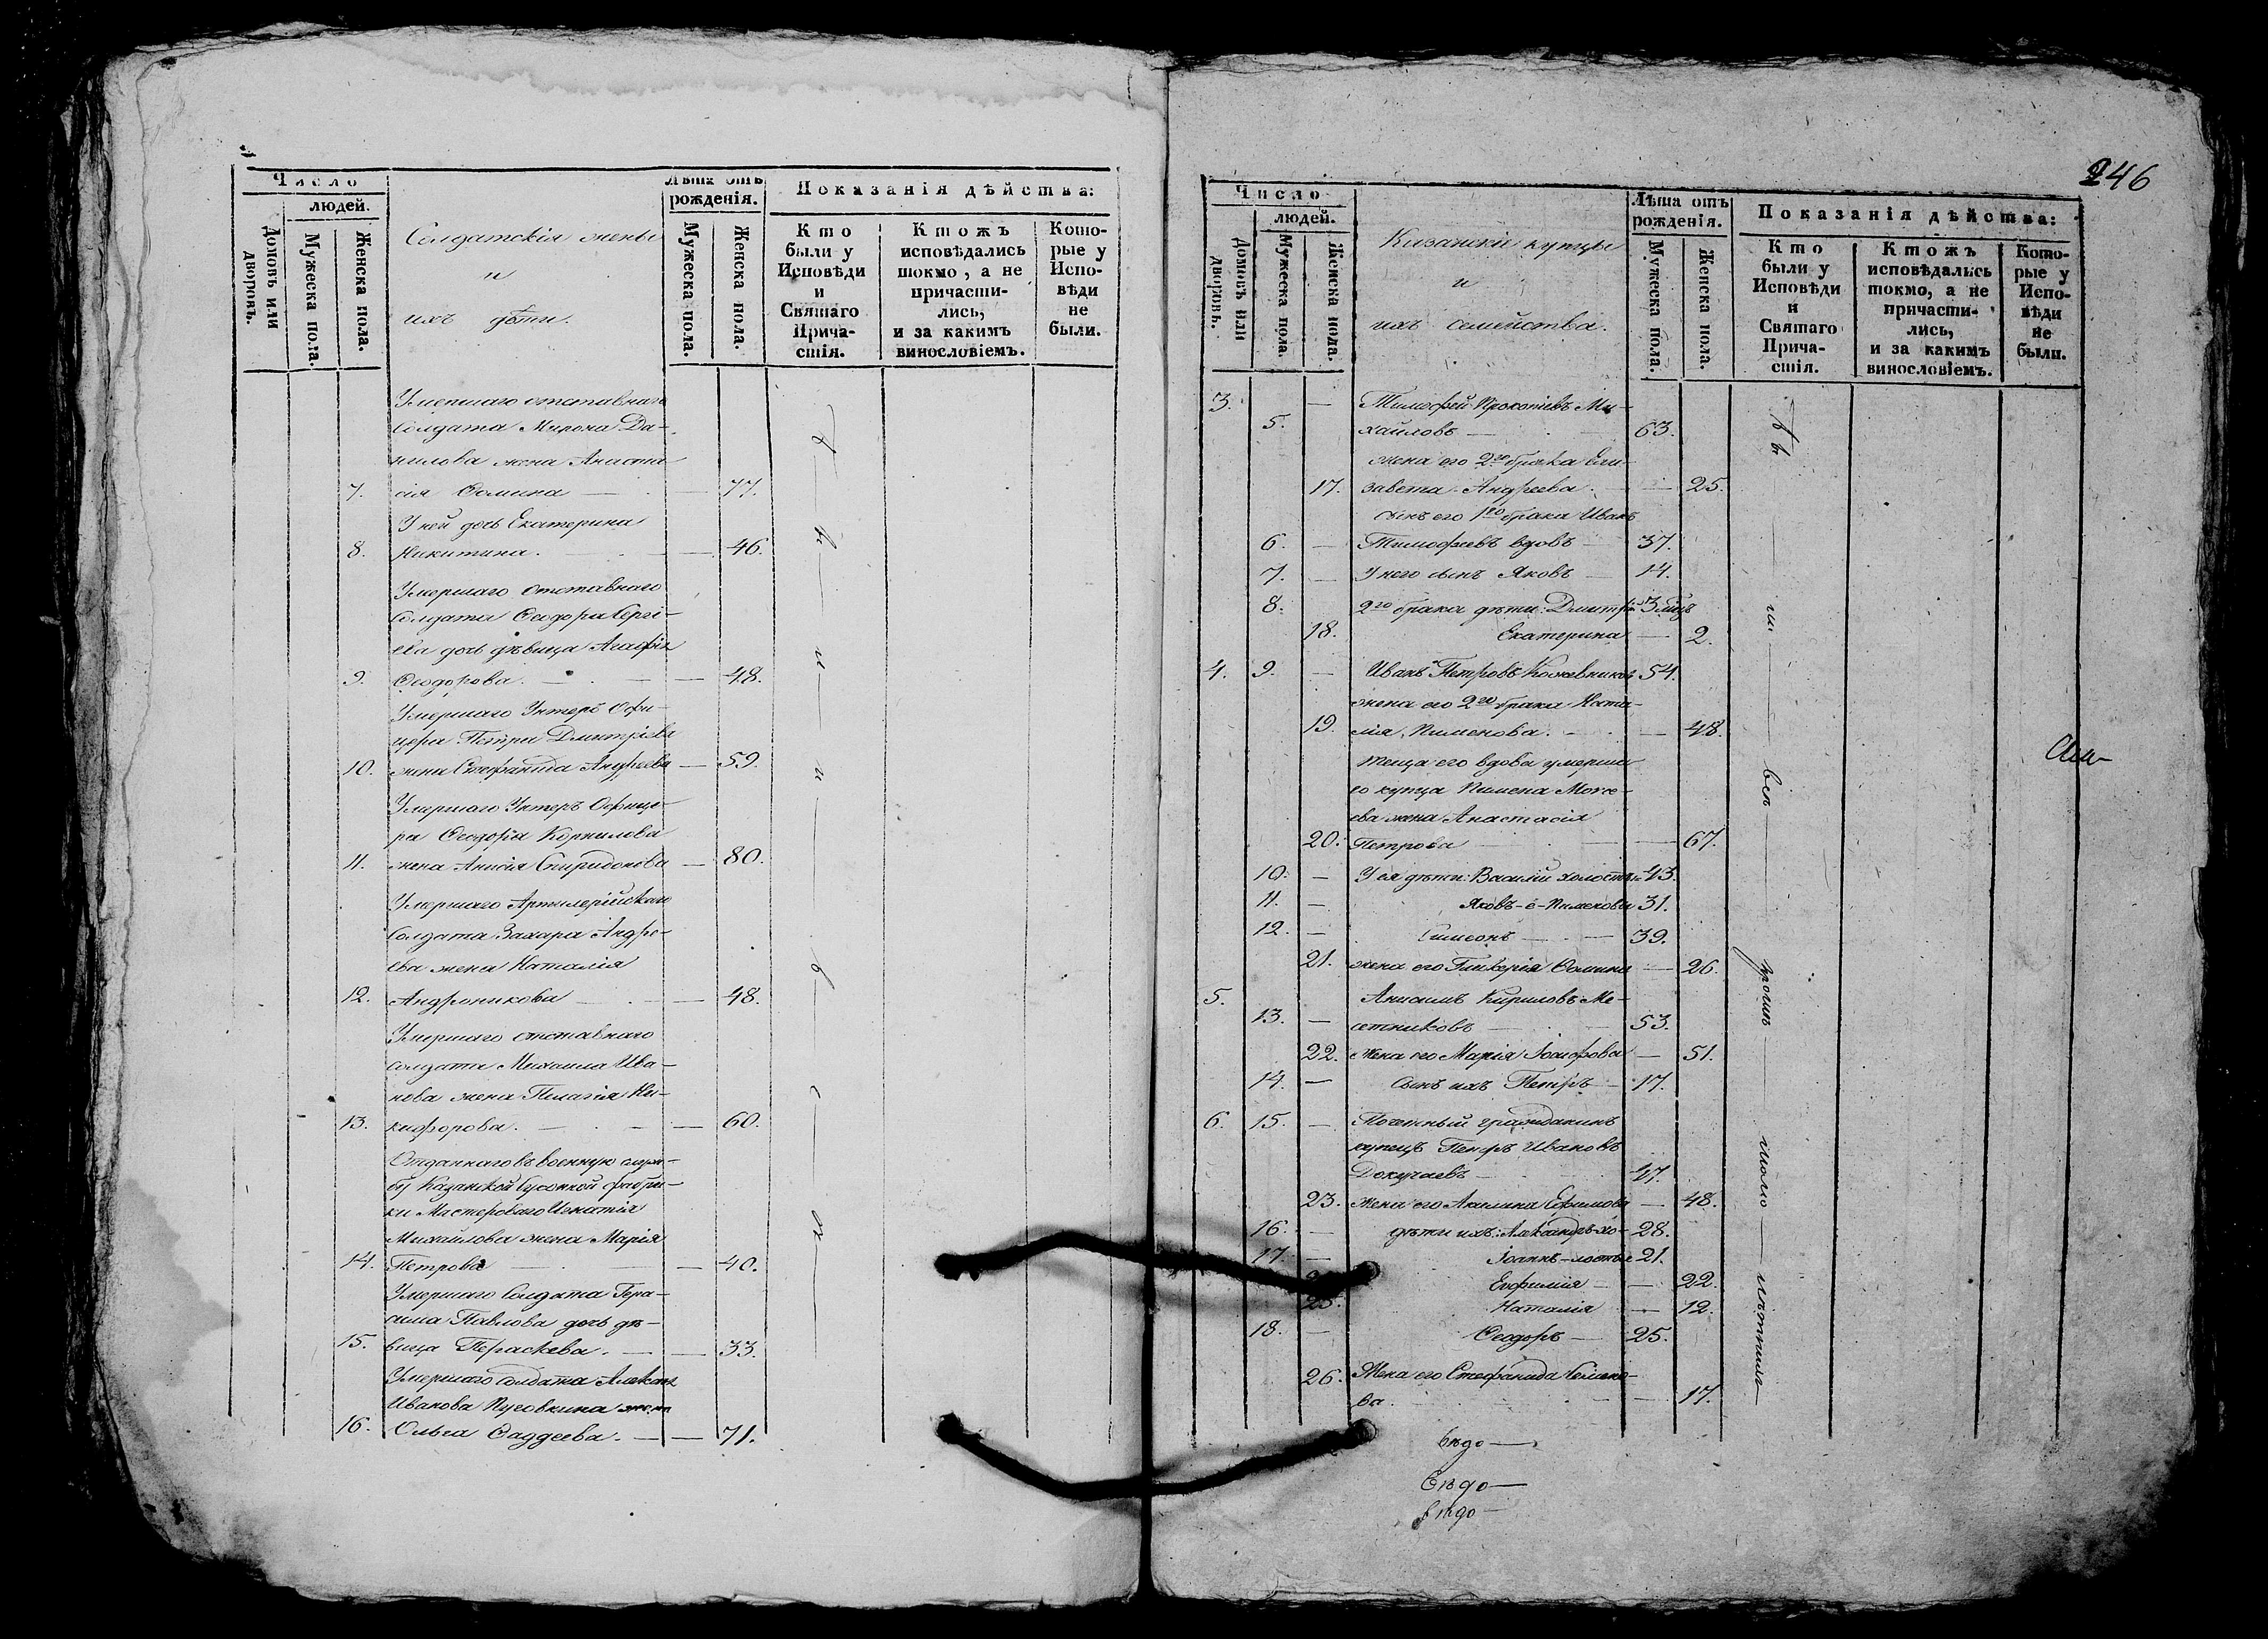 Число
людей.
Домовъ или дворовъ.
Мужеска пола.
Женска пола.
Солдатскія жены
и
ихъ дѣти.
Лѣта отъ
рожденія.
Мужеска пола.
Женска пола.
Показанія дѣйства:
Кто
были у
Исповѣди
и
Святаго
Прича-
стія.
Ктожъ
исповѣдались
токмо, а не
причасти-
лись,
и за какимъ
винословіемъ.
Кото-
рые у
Испо-
вѣди
не
были.
Умершаго отставнаго
солдата Мирона Да-
нилова жена Анаста
7. сія Ѳомина — 77.
У ней дочь Екатерина
8. Никитина. — 46.
Умершаго отставнаго
Солдата Ѳеодора Сергі-
ева дочь дѣвица Агафія
9. Ѳеодорова. — 48.
Умершаго Унтеръ Офи-
цера Петра Дмитріева
10. жена Стефанида Андреева — 59.
Умершаго Унтеръ Офице-
ра Ѳеодора Корнилова
11. жена Анисія Спиридонова — 80.
Умершаго Артилерійскаго
Солдата Захара Андре-
ева жена Наталія
12. Андроникова — 48.
Умершаго отставнаго
солдата Михаила Ива-
нова жена Пелагія Ни-
13. кифорова. — 60.
Отданнаго въ военную служ-
бу Казанской суконной фабри-
ки Мастероваго Игнатія
Михайлова жена Марія
14. Петрова — 40.
Умершаго Солдата Гера-
сима Павлова дочь дѣ-
15. вица Параскева. — 33.
Умершаго солдата
Иванова Пуговкина жена
16. Ольга Ѳаддеева. — 71.
246
Число
людей.
Домовъ или дворовъ.
Мужеска пола.
Женска пола.
Казанскіе купцы
и
ихъ семейства.
Лѣта отъ
рожденія.
Мужеска пола.
Женска пола.
Показанія дѣйства:
Кто
были у
Исповѣди
и
Святаго
Прича-
стія.
Ктожъ
исповѣдались
токмо, а не
причасти-
лись,
и за какимъ
винословіемъ.
Кото-
рые у
Испо-
вѣди
не
были.
3. — Тимофей Прокопіевъ Ми-
5. хайловъ — 63.
жена его 2го брака Ели-
17. завета Андреева. — 25.
сынъ его 1го брака Иванъ
6. — Тимофеевъ вдовъ — 37.
7. — У него сынъ Яковъ — 14.
8. 2го брака дѣти: Дмитрій 3 мѣс
18. Екатерина — 2.
4. 9. — Иванъ Петровъ Кожевниковъ 54.
жена его 2го брака Ната-
19. лія Пименова. — 48.
теща его вдова умерша-
го купца Пимена Моисе-
ева жена Анастасія
20. Петрова — 67.
10. — У ея дѣти: Василій холостъ 43.
11. — Яковъ Пименовы 31.
12. — Симеонъ — 39.
21. жена его Гликерія Ѳомина — 26.
5. Анисимъ Кириловъ Ме-
13. — сетниковъ — 53.
22. жена его Марія Іосифова — 51.
14. — Сынъ ихъ Петръ — 17.
6. 15. — Почетный гражданинъ
купецъ Петръ Ивановъ
Докучаевъ — 47.
23. Жена его Акилина Ефимова — 48.
16. — дѣти ихъ: Александръ хо- 28.
17. — Іоаннъ — лостые 21.
Евфимія — 22.
25. Наталія — 12.
18. — Ѳеодоръ — 25.
26. Жена его Стефанида
ва. — 17.